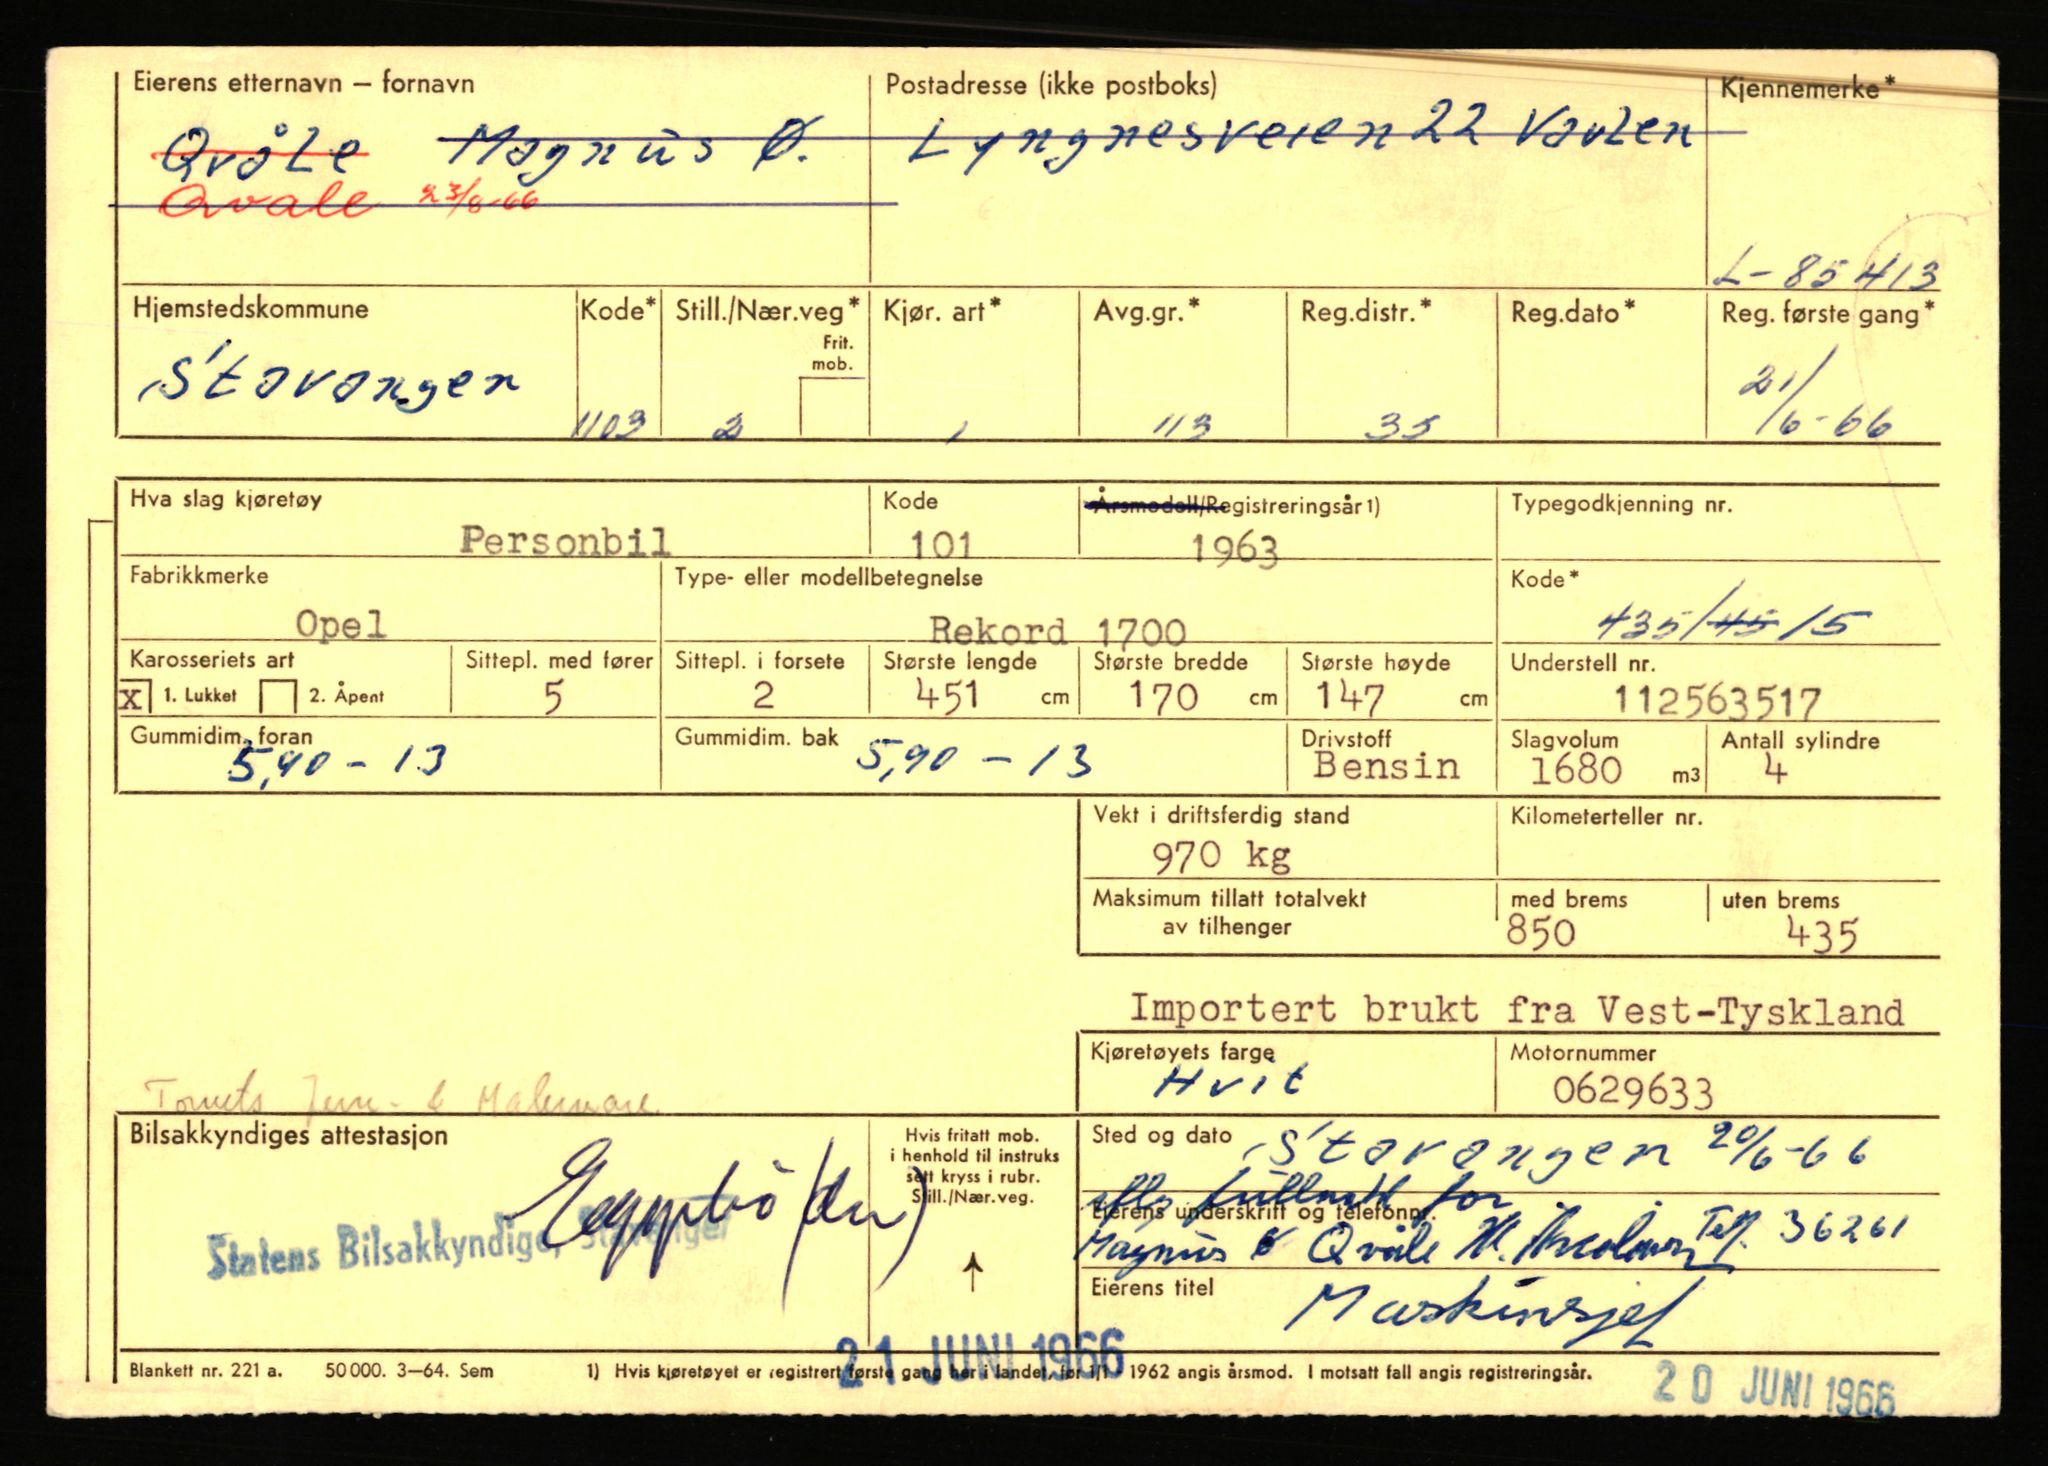 Eierens etternavn – fornavn Postadresse (ikke postboks) Kjennemerke*
Qvåle Magnus Ø. Lyngnesveien 22 Vaulen
Qvale 23/8-66
L-85413
Hjemstedskommune Kode* Still./Nær.veg* Kjør. art* Avg.gr.* Reg.distr.* Reg.dato* Reg. første gang*
Frit. mob.
Stavanger 1103 2 1 113 35 21/6-66
Hva slag kjøretøy Kode Årsmodell/Registreringsår 1) Typegodkjenning nr.
Personbil 101 1963
Fabrikkmerke Type- eller modellbetegnelse Kode*
Opel Rekord 1700 435/45/5
Karosseriets art Sittepl. med fører Sittepl. i forsete Største lengde Største bredde Største høyde Understell nr.
X 1. Lukket 2. Åpent 5 2 451 cm 170 cm 147 cm 112563517
Gummidim. foran Gummidim. bak Drivstoff Slagvolum Antall sylindre
5,90 – 13 5,90 – 13 Bensin 1680 m3 4
Vekt i driftsferdig stand Kilometerteller nr.
970 kg
Maksimum tillatt totalvekt med brems uten brems
av tilhenger 850 435
Importert brukt fra Vest-Tyskland
Kjøretøyets farge Motornummer
Hvit 0629633
Jern- & Malervare
Bilsakkyndiges attestasjon Hvis fritatt mob. i henhold til instruks sett kryss i rubr. Still./Nær.veg. Sted og dato
Stavanger 20/6-66
fullmakt for
Statens Bilsakkyndige, Stavanger Eierens underskrift og telefonnr.
Magnus Ø Qvåle Telf. 36261
Eierens titel
Maskinsjef
21 JUNI 1966
Blankett nr. 221 a. 50 000. 3–64. Sem 1) Hvis kjøretøyet er registrert første gang her i landet, før 1/1 1962 angis årsmod. I motsatt fall angis registreringsår.
20 JUNI 1966